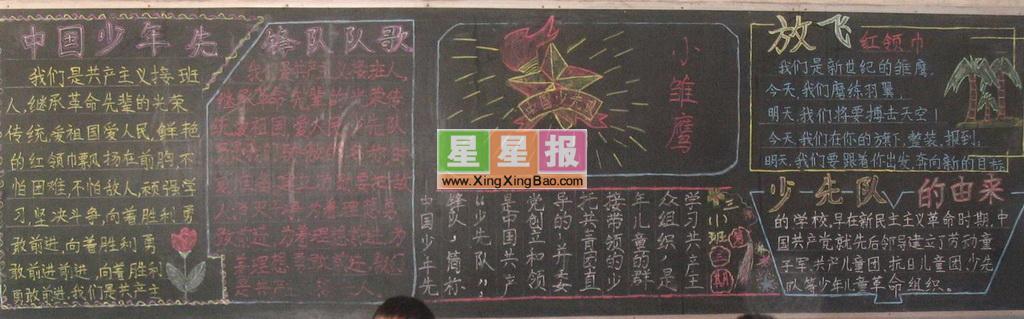 中国少年先锋队队歌
我们是共产主义接班
人,继承革命先辈的光荣
传统,爱祖国,爱人民,鲜艳
的红领巾飘扬在前胸,不
怕困难,不怕敌人,顽强学
习,坚决斗争,向着胜利勇
敢前进,向着胜利勇
敢前进前进,向着胜利
勇敢前进,我们是共产主
我们是共产主义接班人,
继承革命先辈的光荣传
统,爱祖国,爱人民,少先队
小雏鹰
中国少先队
星星报
www.XingXingBao.com
三(1)班
学习共产主
众组织,是
年儿童的群
接带领的少
先共青团直
早的,并委
党创立和领
是中国共产
“少先队”,
锋队,简称
中国少年先
放飞红领巾
我们是新世纪的雏鹰,
今天,我们磨练羽翼,
明天,我们将要搏击天空!
今天,我们在你的旗下,整装,报到,
明天,我们要跟着你出发,奔向新的目标
少先队的由来
的学校,早在新民主主义革命时期,中
国共产党就先后领导建立了劳动童
子军,共产儿童团,抗日儿童团,少先
队等少年儿童革命组织。